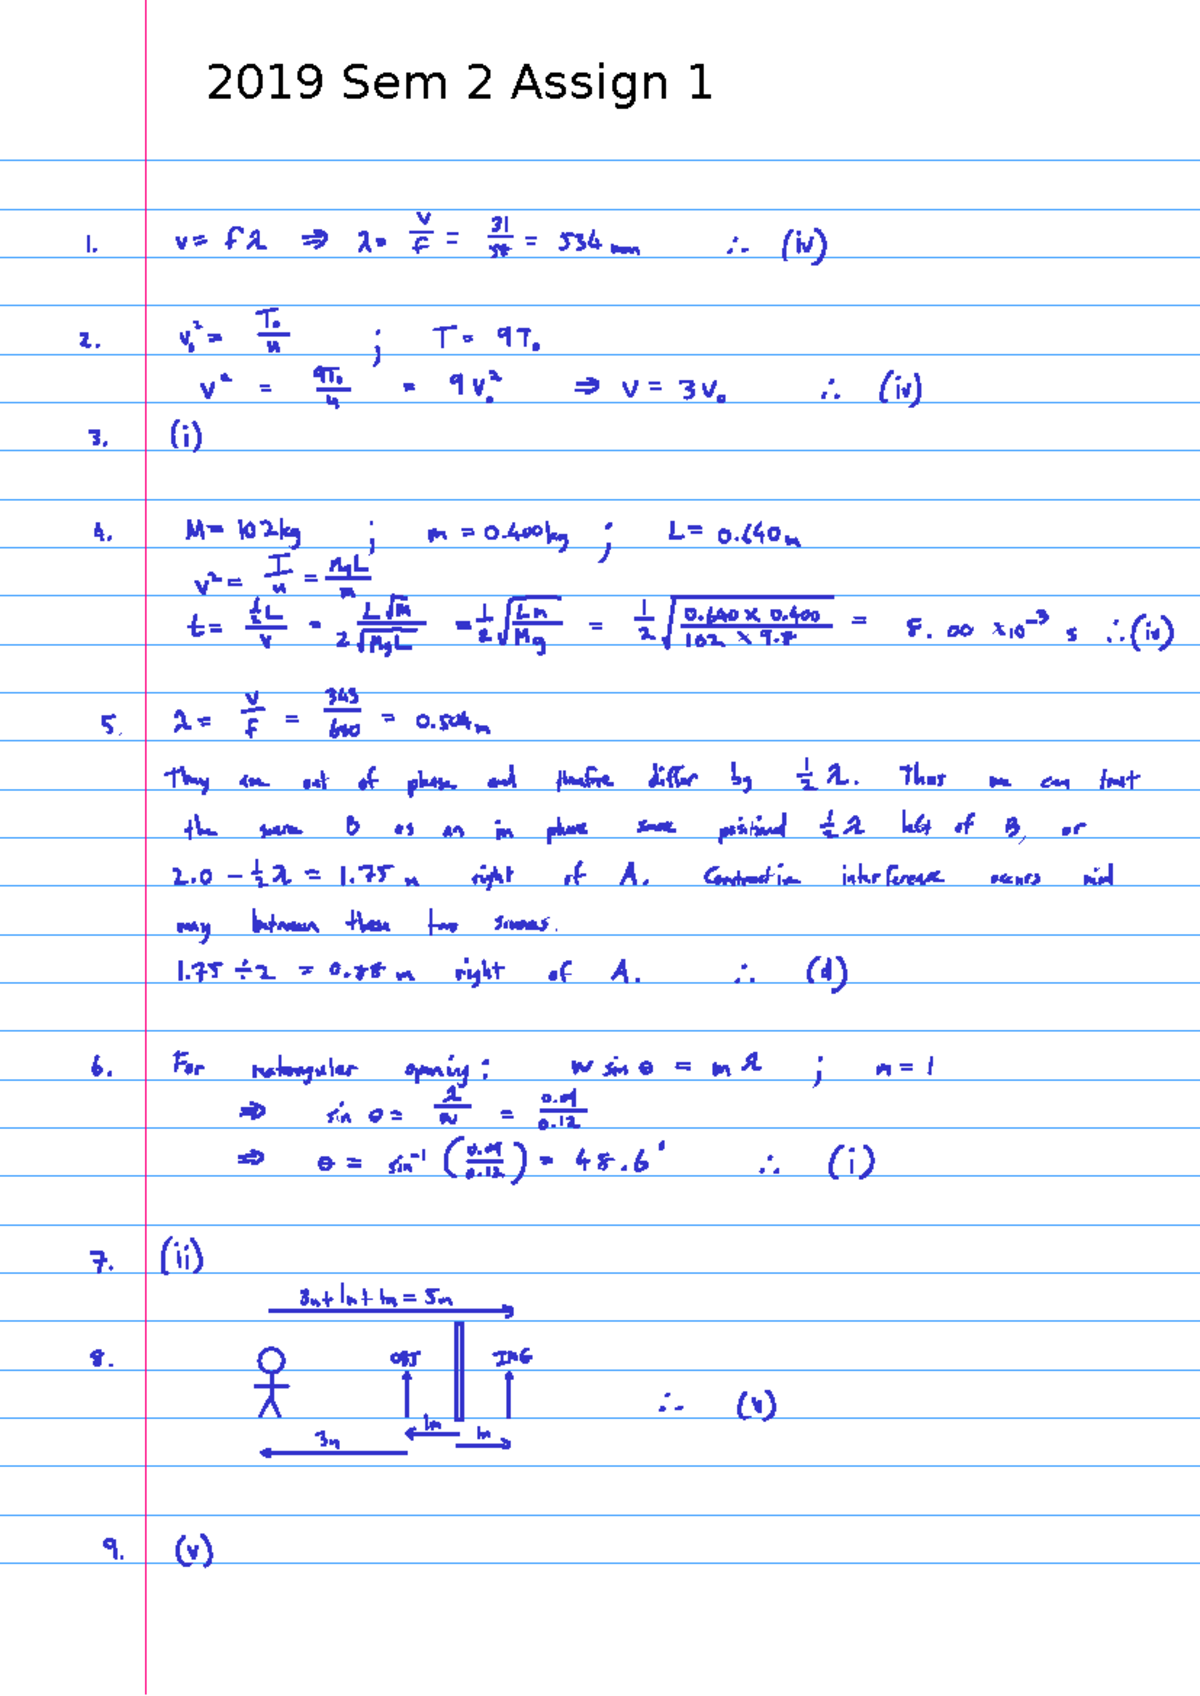 2019 Sem 2 Assign 1
1. v = fλ ⇒ λ = v/f = 31/58 = 534 mm ∴ (iv)
2. v₀² = T₀/μ ; T = 9T₀
v² = 9T₀/μ = 9v₀² ⇒ v = 3v₀ ∴ (iv)
3. (i)
4. M = 102kg ; m = 0.400kg ; L = 0.640m
v² = T/μ = MgL/m
t = ½L/v = L√m/2√MgL = 1/2 √(Lm/Mg) = 1/2 √(0.640 × 0.400/102 × 9.8) = 8.00 ×10⁻³ s ∴ (iv)
5. λ = v/f = 343/680 = 0.504m
They are out of phase and therefore differ by ½λ. Thus we can treat
the source B as an in phase source positioned ½λ left of B, or
2.0 − ½λ = 1.75 m right of A. Constructive interference occurs mid
way between these two sources.
1.75 ÷ 2 = 0.88 m right of A. ∴ (d)
6. For rectangular opening: w sin θ = mλ ; m = 1
⇒ sin θ = λ/w = 0.09/0.12
⇒ θ = sin⁻¹ (0.09/0.12) = 48.6° ∴ (i)
7. (ii)
3m + 1m + 1m = 5m
8. OBJ IMG ∴ (v)
1m 1m
3m
9. (v)